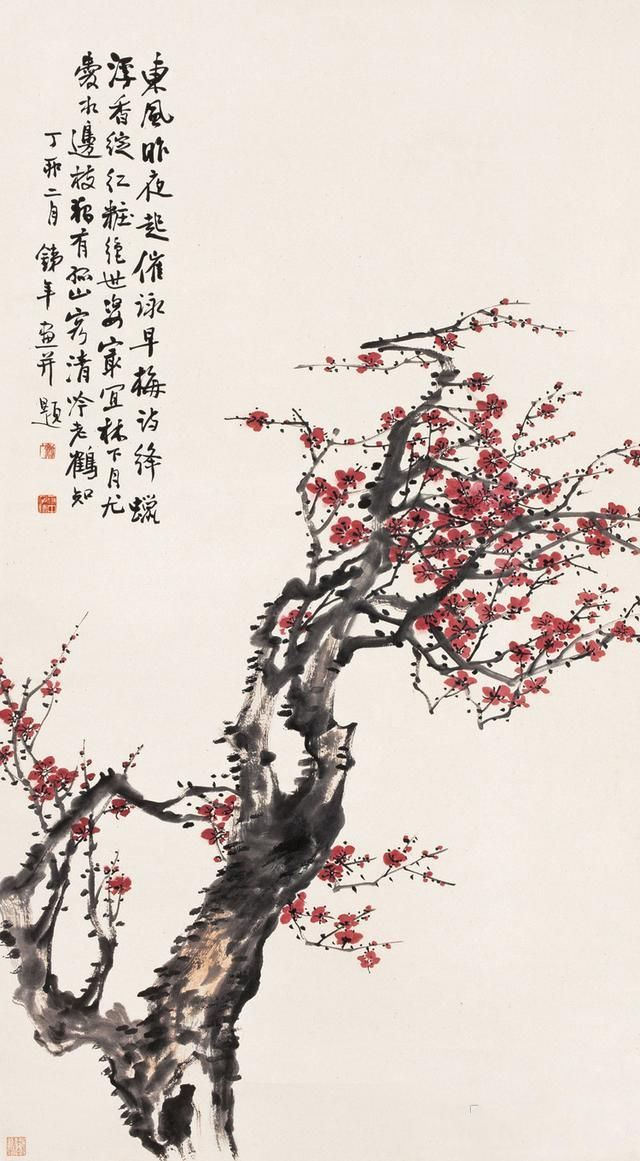 東風昨夜起催詠早梅詩絳蠟
浮香綻紅粧絕世姿最宜林下月尤
愛水邊枝獨有孤山客清冷老鶴知
丁卯二月 銕年畫并題